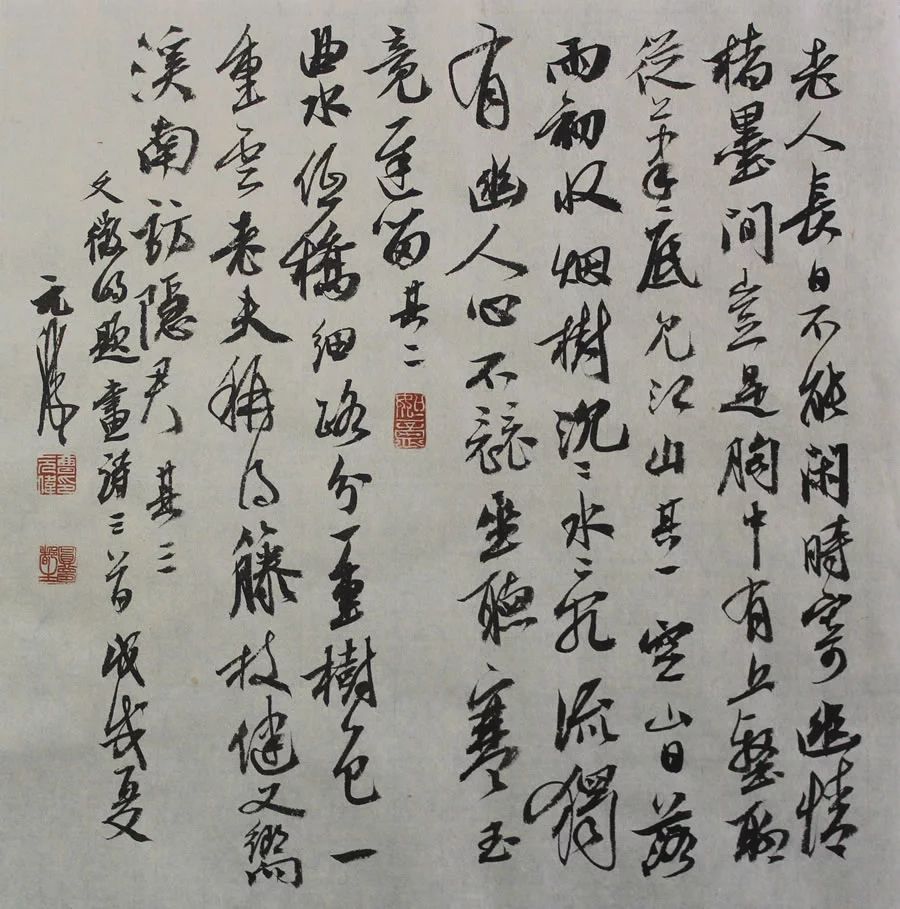 老人長日不能閑時寄幽情
楮墨間豈是胸中有丘壑聊
從筆底見江山其一空山日落
雨初收烟樹沉〻水乱流獨
有幽人心不競坐聽寒玉
竟遲留其二
曲水低橋細路分一重樹色一
重雲老夫稱得籐枝健又嚮
溪南訪隱君其三
文徵明題畫詩三首戊戌夏
元偉